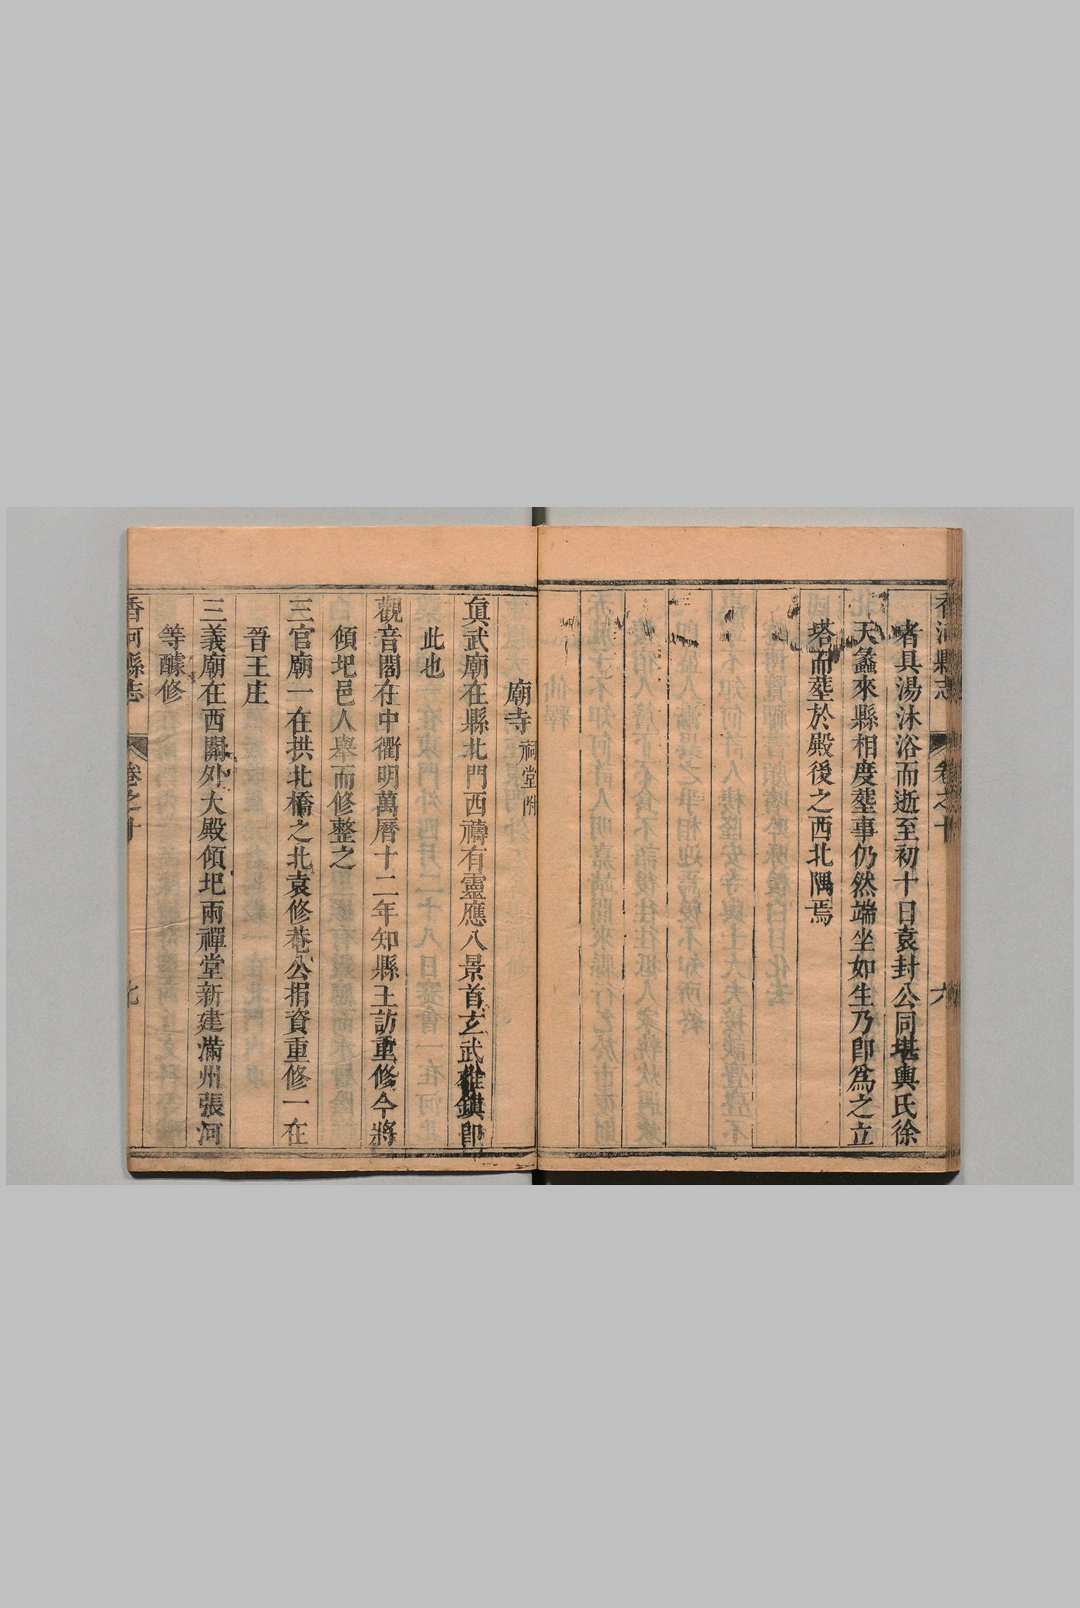 香河縣志 卷之十 六
者具湯沐浴而逝至初十日袁封公同堪輿氏徐
天蠡來縣相度塟事仍然端坐如生乃卽爲之立
塔而塟於殿後之西北隅焉
廟寺 祠堂附
眞武廟在縣北門西禱有靈應八景首玄武雄鎮卽
此也
觀音閣在中衢明萬曆十二年知縣王訪重修今將
傾圯邑人舉而修整之
三官廟一在拱北橋之北袁修菴公捐資重修一在
晉王庄
三義廟在西關外大殿傾圯兩禪堂新建滿州張河
等醵修
香河縣志 卷之十 七